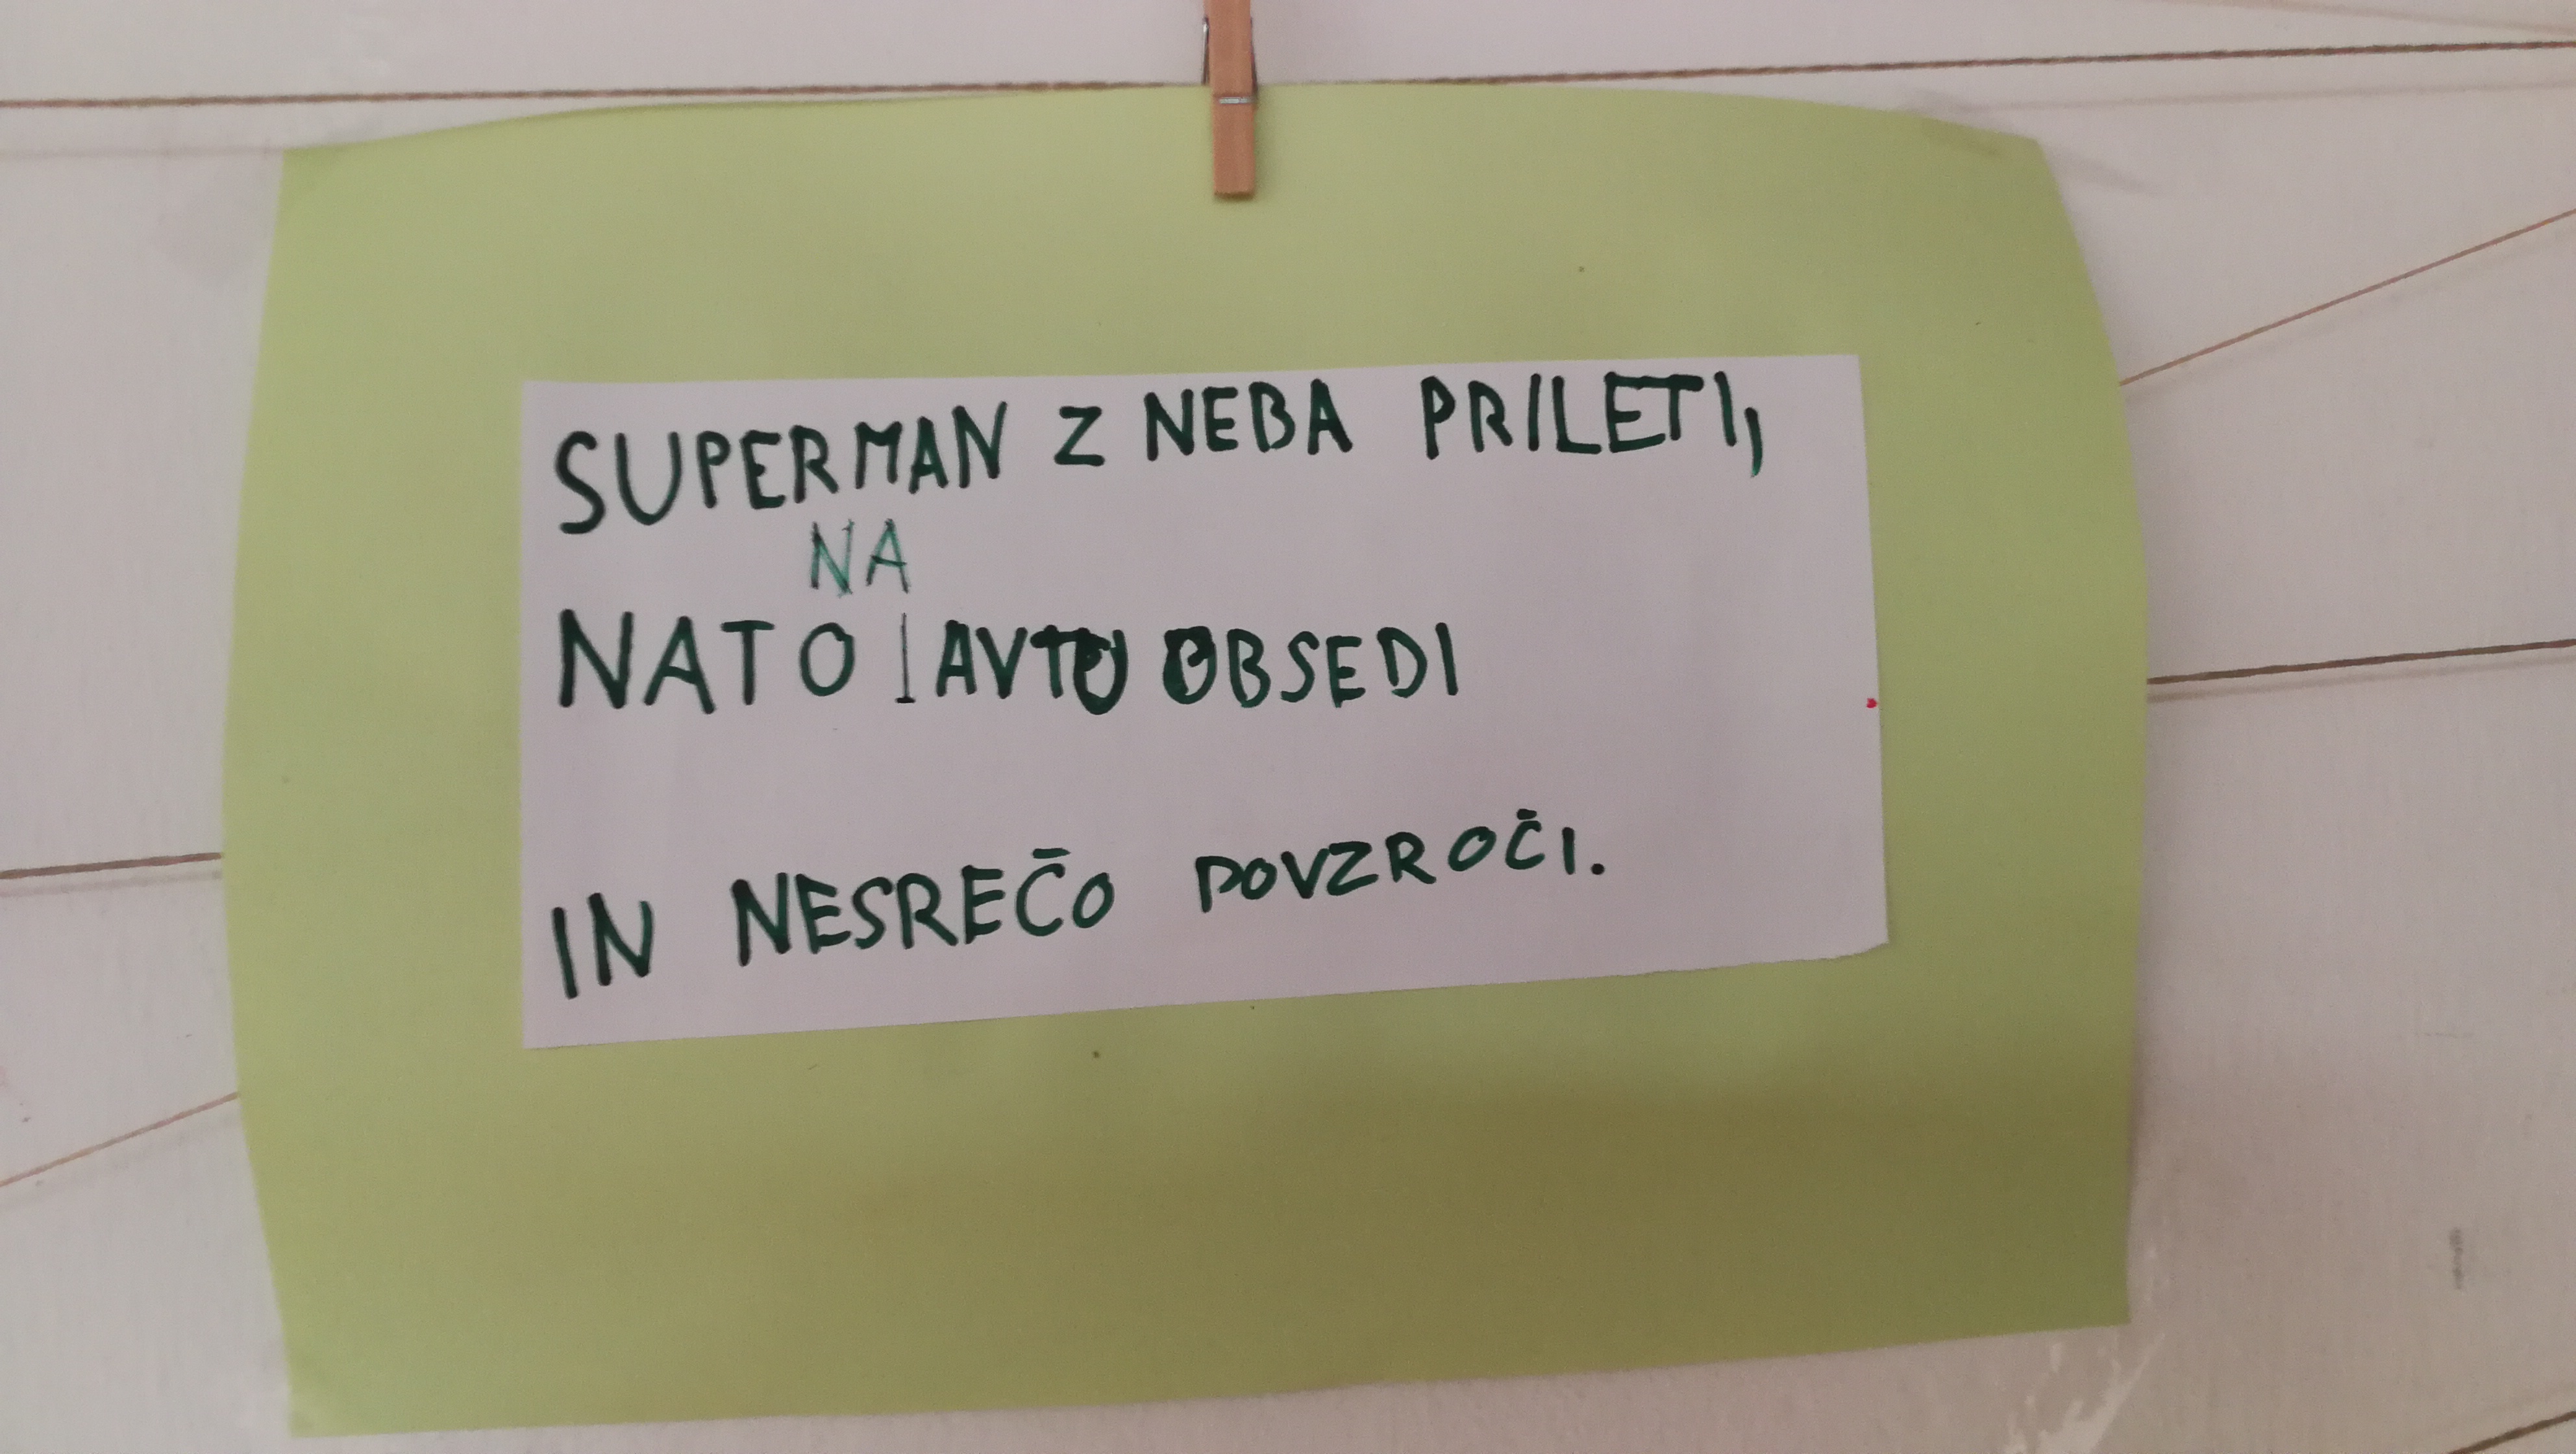 SUPERMAN Z NEBA PRILETI,
NA
NATO | AVTU OBSEDI
IN NESREČO POVZROČI.